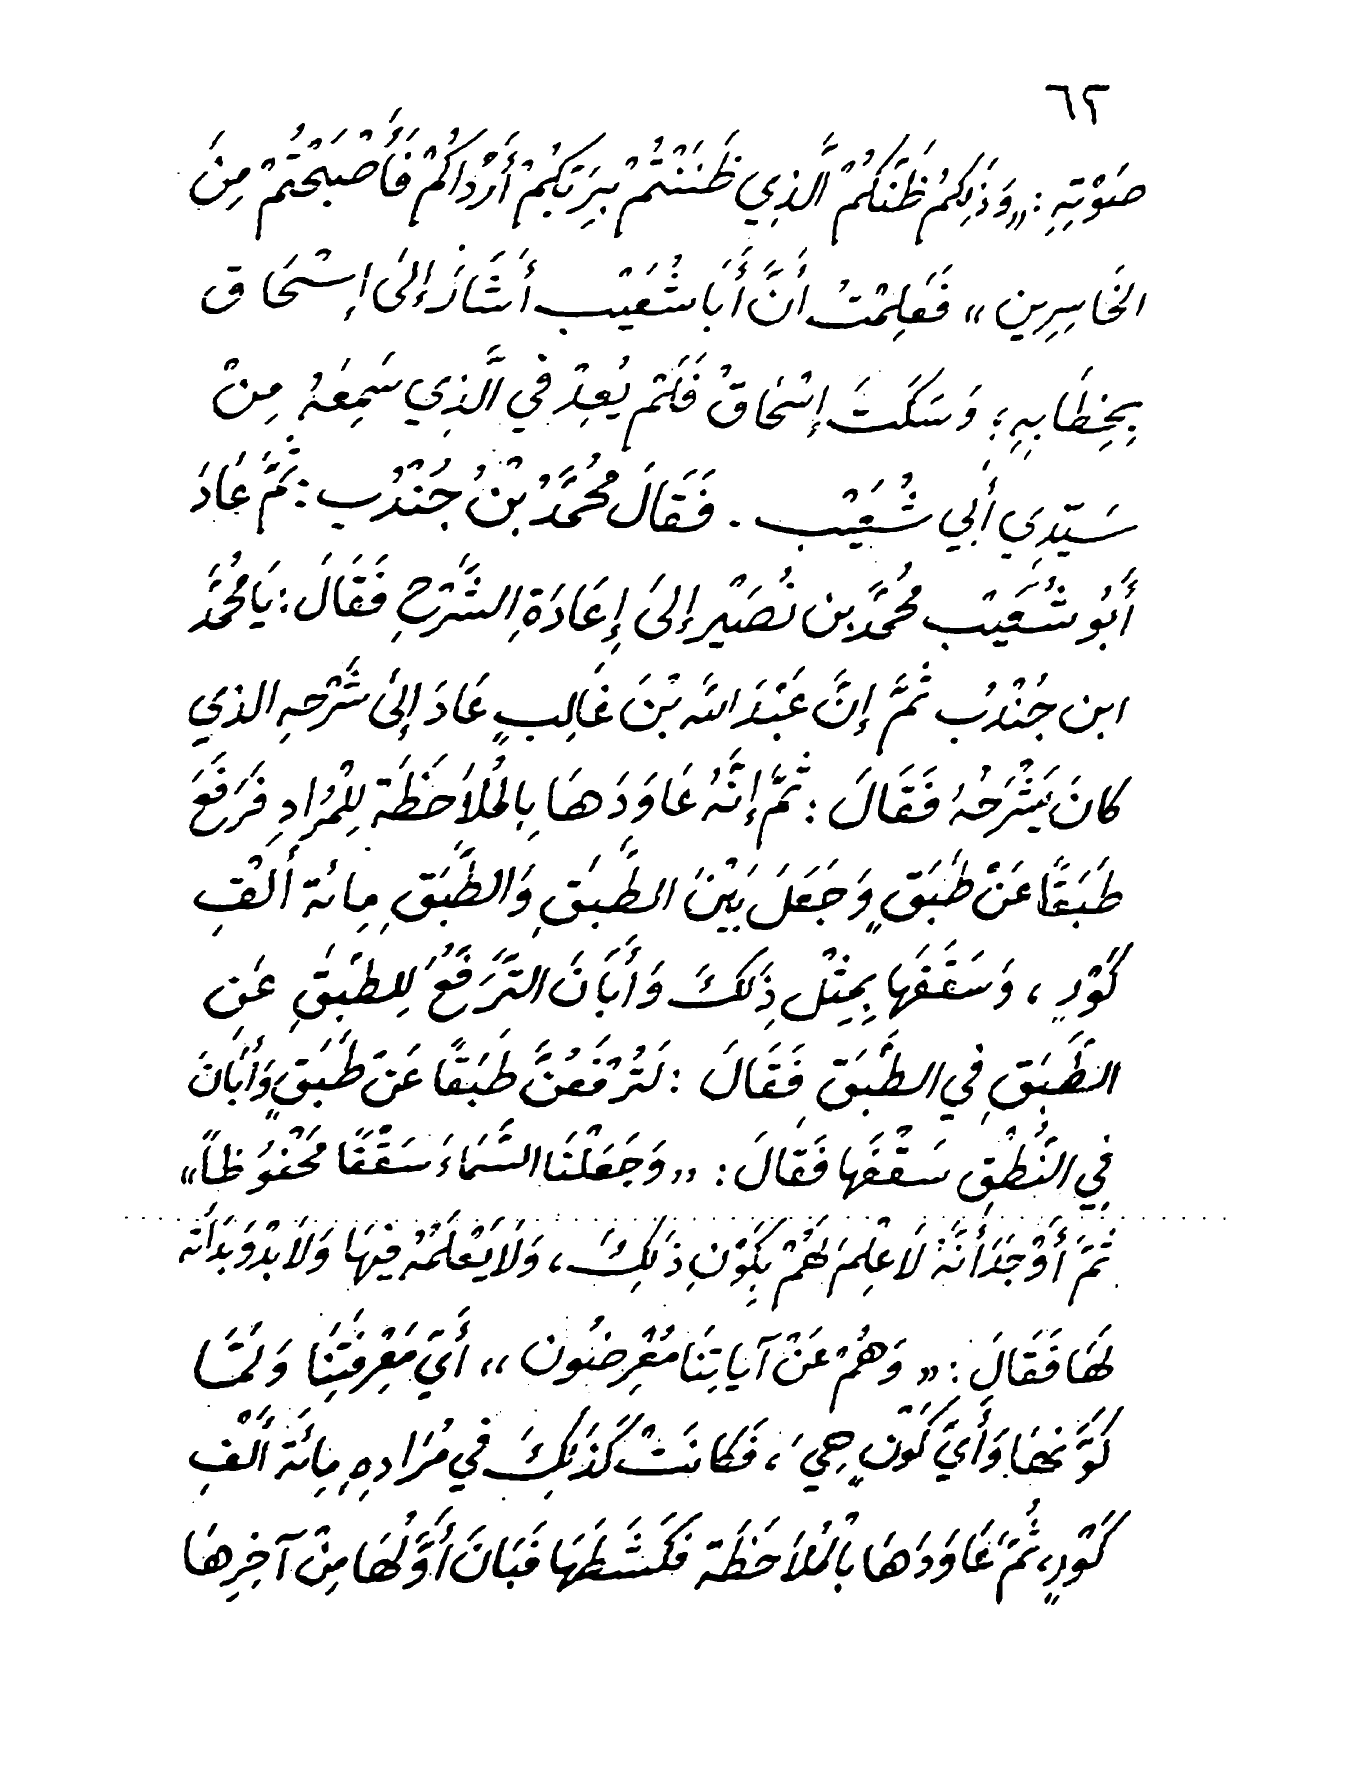 ٦٢
صَوْتِهِ : «وَذَلِكُمْ ظَنُّكُمْ الَّذِي ظَنَنْتُمْ بِرَبِّكُمْ أَرْدَاكُمْ فَأَصْبَحْتُمْ مِنَ
الخَاسِرِين» فَعَلِمْتُ أَنَّ أَبَا شُعَيْب أَشَارَ إِلَى إِسْحَاق
بِخِطَابِهِ ؛ وَسَكَتَ إِسْحَاقُ فَلَمْ يُعِدْ فِي الَّذِي سَمِعَهُ مِنْ
سَيِّدِي أَبِي شُعَيْب . فَقَالَ مُحَمَّدُ بْنُ جُنْدُب : ثُمَّ عَادَ
أَبُو شُعَيْب مُحَمَّد بن نُصَيْر إِلَى إِعَادَةِ الشَّرْحِ فَقَالَ : يَا مُحَمَّد
ابن جُنْدُب ثُمَّ إِنَّ عَبْدَ اللّه بْنَ غَالِبٍ عَادَ إِلَى شَرْحِهِ الذي
كانَ يَشْرَحُهُ فَقَالَ : ثُمَّ إِنَّهُ عَاوَدَهَا بِالمُلاَحَظَة لِلْمُرَادِ فَرَفَعَ
طَبَقًا عَنْ طَبَقٍ وَجَعَلَ بَيْنَ الطَّبَقِ وَالطَّبَقِ مِائة أَلْفِ
كَوْرٍ ، وَسَقَّفَهَا بِمِثْلِ ذَلكَ وَأَبَانَ التَّرَفُّعَ لِلطَّبَقِ عَنِ
الطَّبَقِ فِي الطَّبَقِ فَقَالَ : لَتُرْفَعُنَّ طَبَقًا عَنْ طَبَقٍ وَأَبَانَ
فِي النُّطْقِ سَقْفَهَا فَقَالَ : «وَجَعَلْنَا السَّمَاءَ سَقْفًا مَحْفُوظاً»
ثُمَّ أَوْجَدَ أَنَّهُ لَا عِلْمَ لَهُمْ بِكَوْنِ ذَلِكَ ، وَلاَ يَعْلَمُهُ فِيهَا وَلاَ بدْوَ بَدَأَته
لهَا فَقَالَ : «وَهُمْ عَنْ آيَاتِنَا مُعْرِضُون» أَيْ مَعْرِفَتِنَا وَلَمَّا
كَوَّنهَا وَأَيَّ كَوْنٍ هِيَ ، فَكَانَتْ كَذَلِكَ فِي مُرَادِهِ مِائَة أَلْفِ
كَوْرٍ، ثُمَّ عَاوَدَهَا بْالْمُلاَحَظَة فَكَشَطَهَا فَبَانَ أَوَّلُهَا مِنْ آخِرِهَا